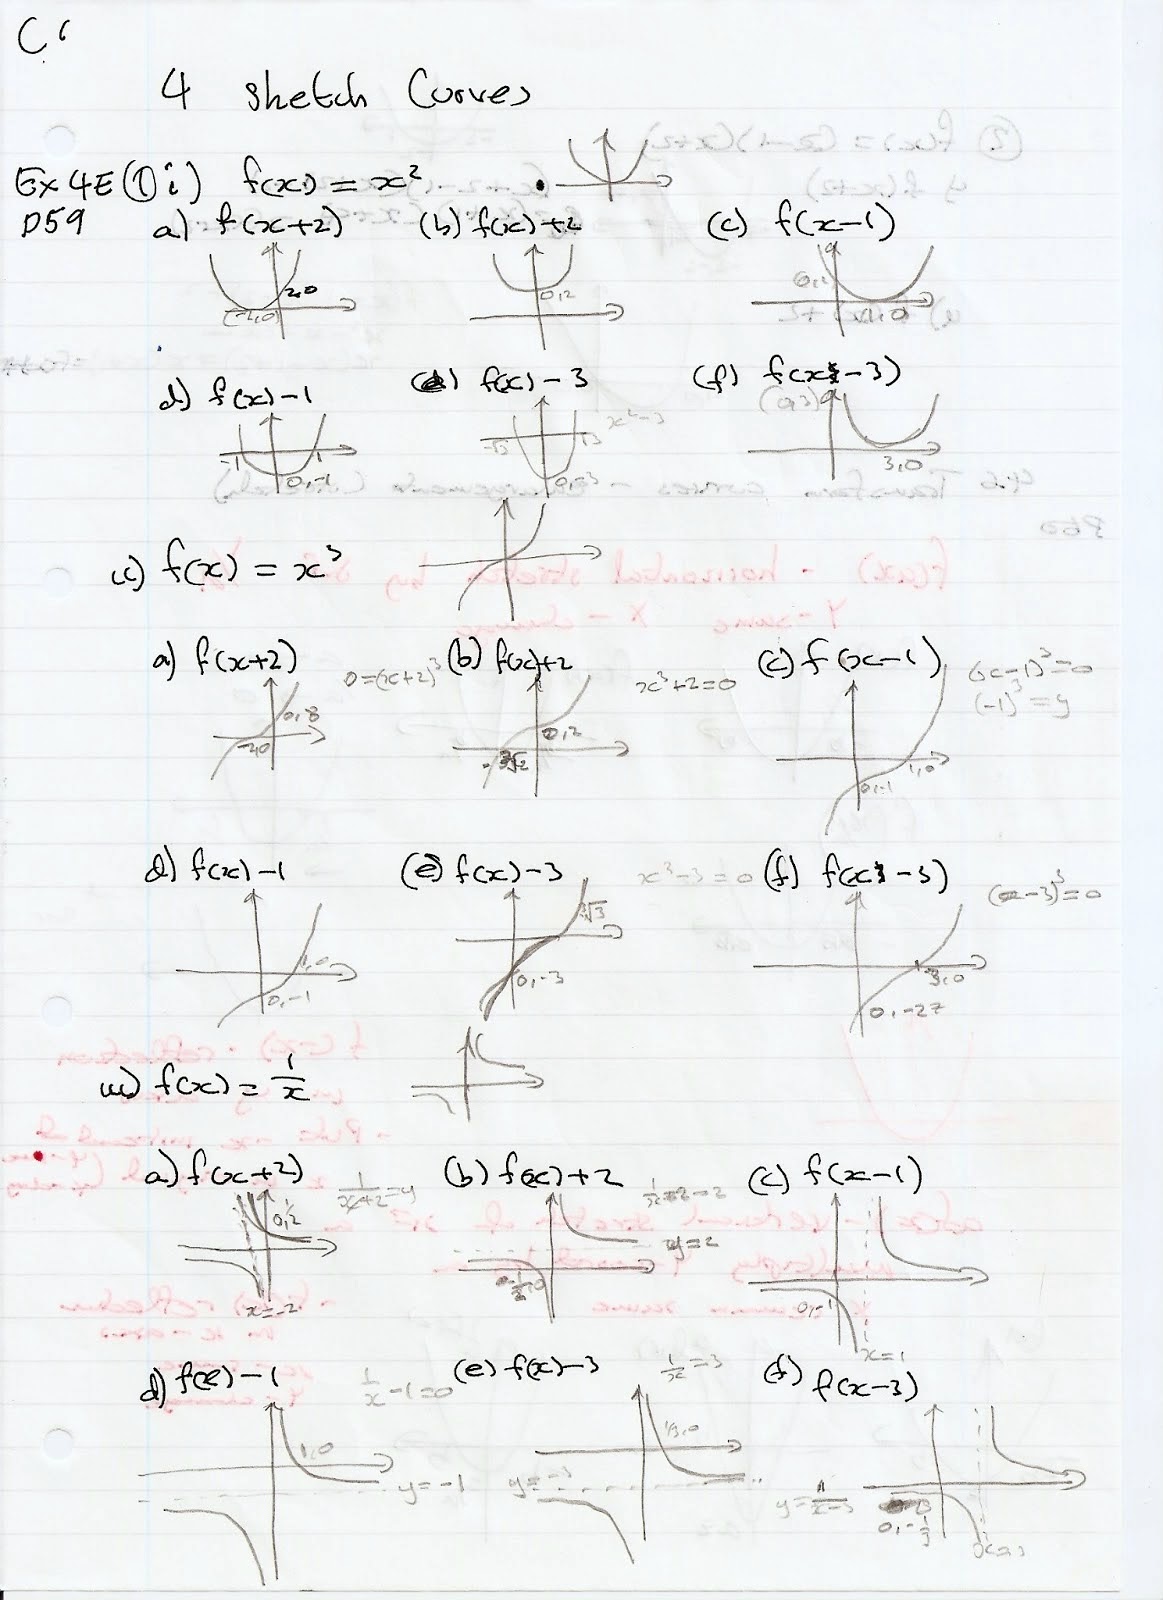 4 Sketch Curves
Ex 4E (1) i) f(x) = x²
P59
a) f(x+2) (b) f(x)+2 (c) f(x-1)
2,0 0,2
(-2,0) 1,0
d) f(x)-1 (e) f(x)-3 (f) f(x-3)
(0,3) x²-3
-1 1 -√3 √3
0,-1 0,-3 3,0
ii) f(x) = x³
a) f(x+2) 0=(x+2)³ (b) f(x)+2 x³+2=0 (c) f(x-1) (x-1)³=0
(-1)³ = y
0,8 0,2
-2,0 -³√2 1,0
0,-1
d) f(x)-1 (e) f(x)-3 x³-3=0 (f) f(x-3) (x-3)³=0
³√3
1,0 0,-3 3,0
0,-1 0,-27
iii) f(x) = 1/x
a) f(x+2) 1/x+2=y (b) f(x)+2 (c) f(x-1)
0,½ y=2
-½,0 0,-1
x=-2 x=1
d) f(x)-1 1/x-1=0 (e) f(x)-3 1/x=3 (f) f(x-3)
1,0 ⅓,0
y=-1 y=-3 y=1/x-3
0,-⅓ x=3